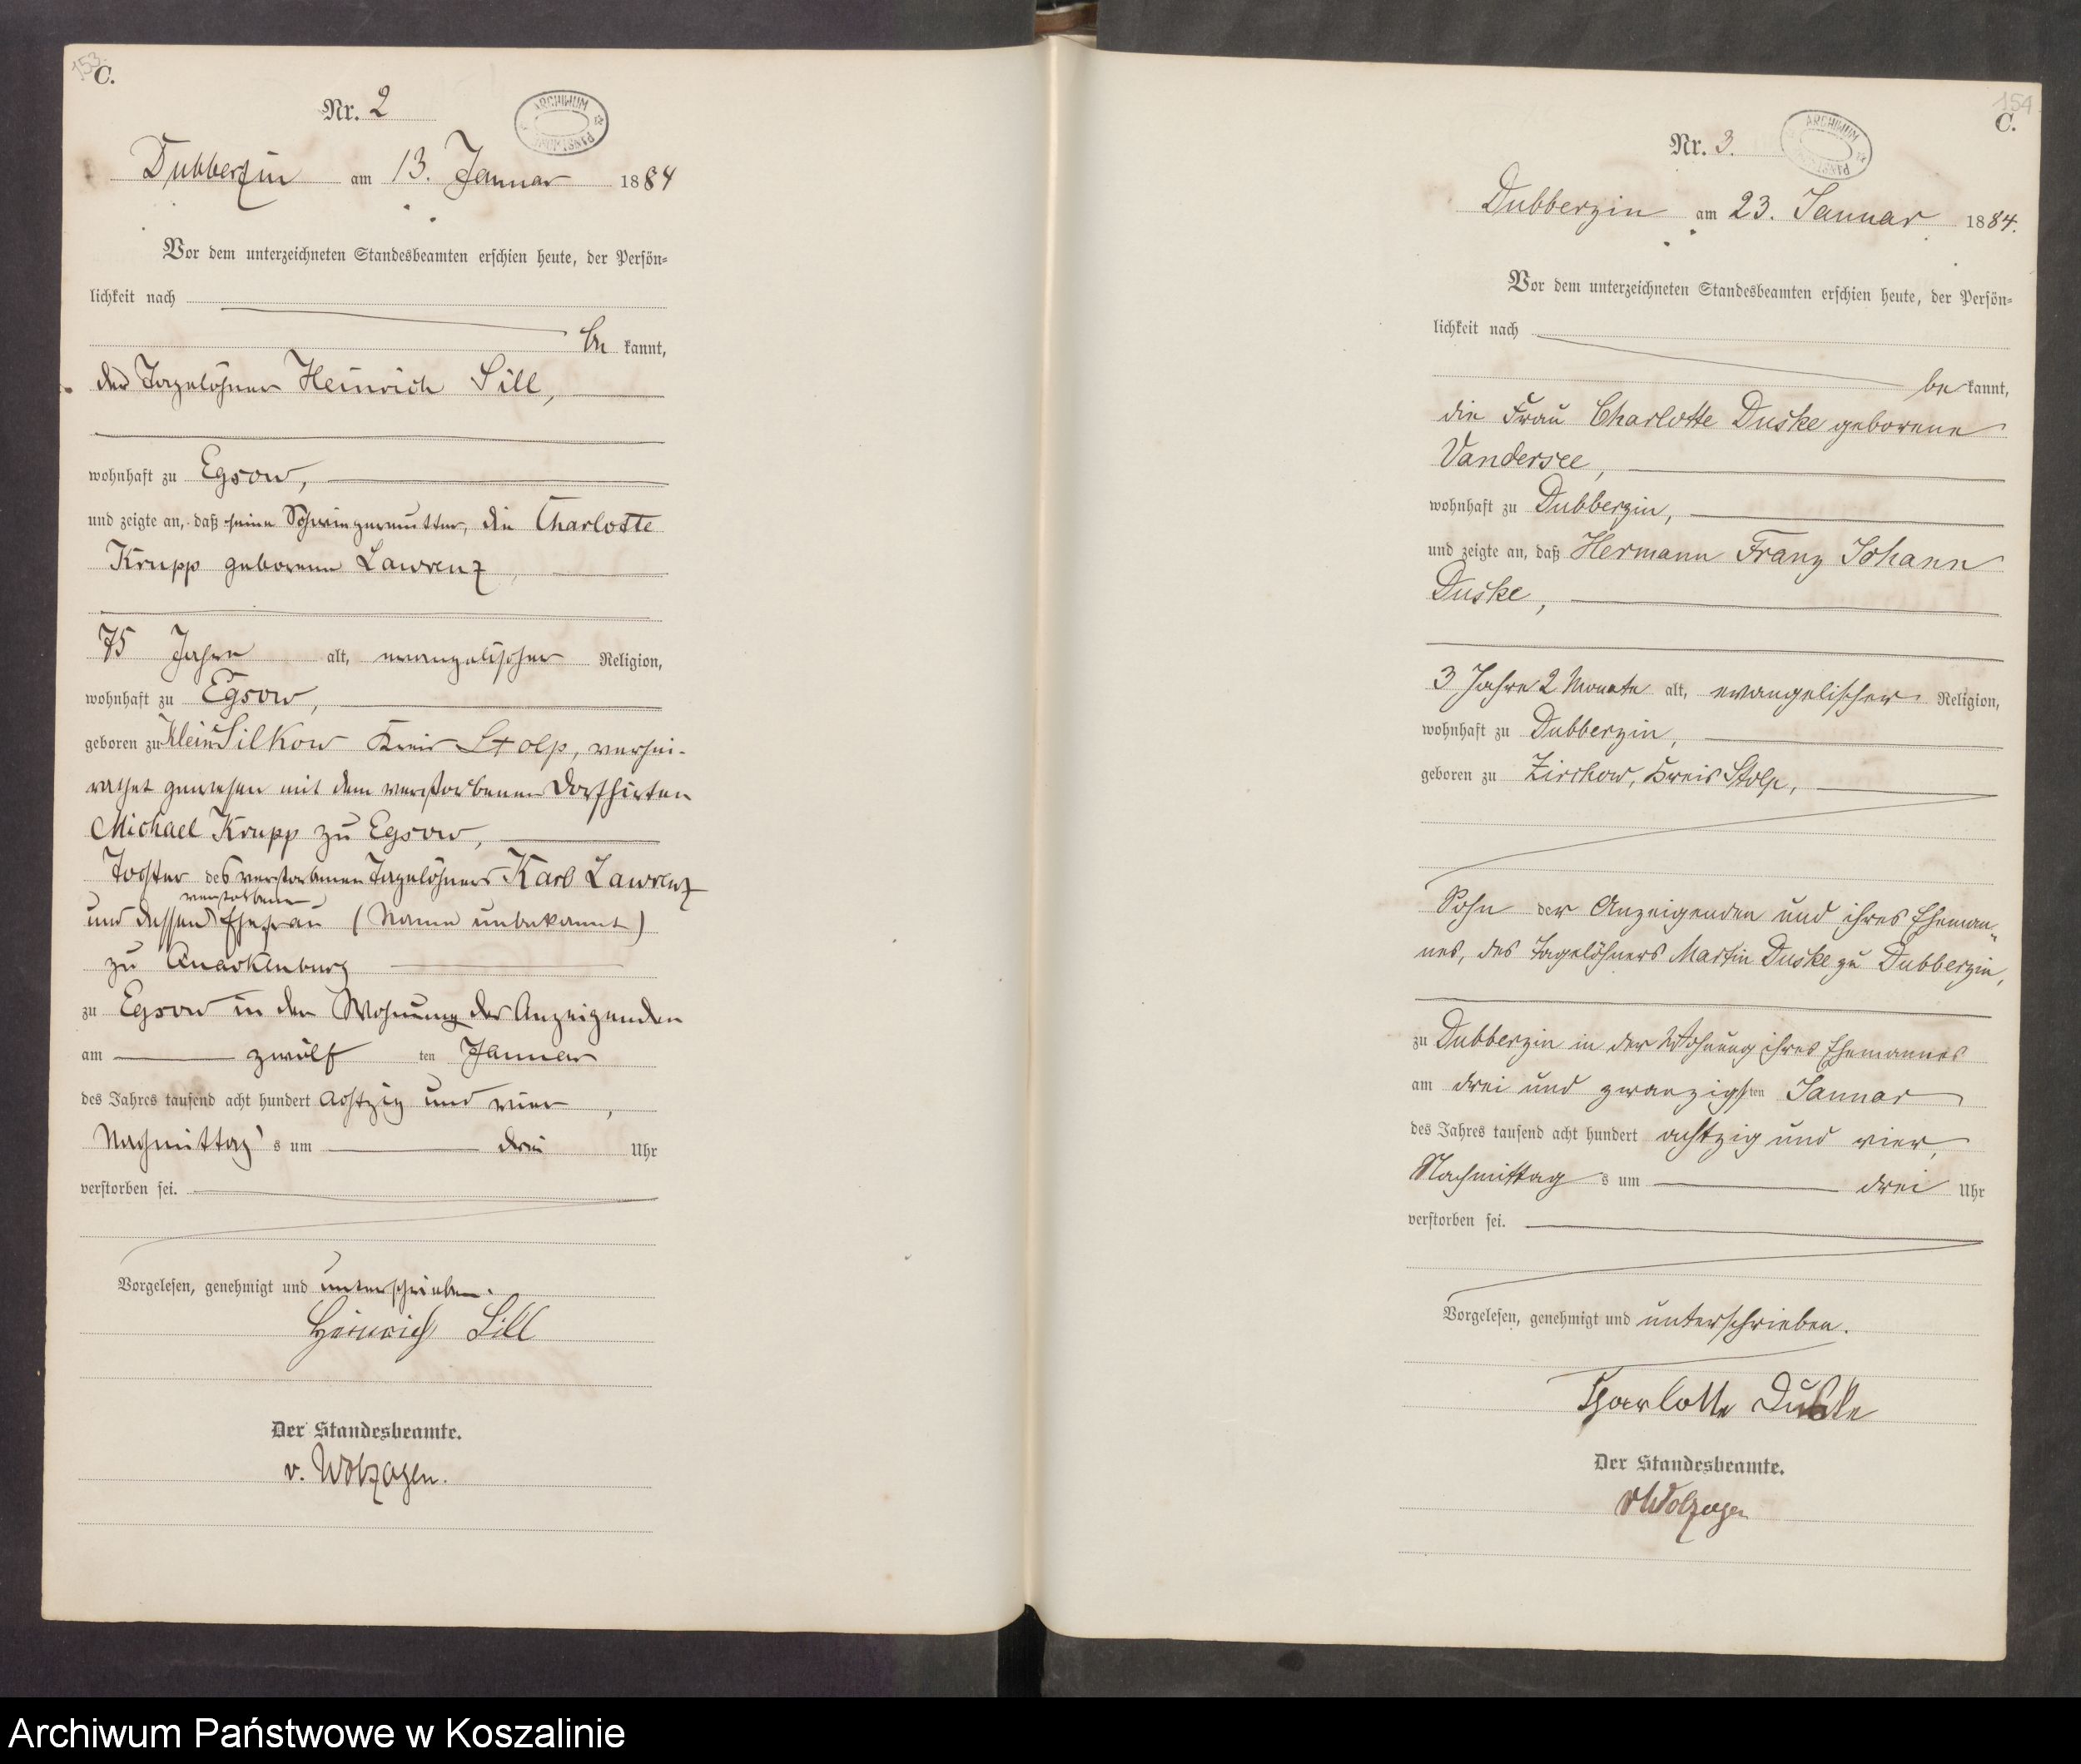 153.
C.
Nr. 2
ARCHIWUM PAŃSTWOWE
Dubberzin am 13. Januar 1884
Vor dem unterzeichneten Standesbeamten erschien heute, der Persön-
lichkeit nach
be kannt,
der Tagelöhner Heinrich Sill,
wohnhaft zu Egsow,
und zeigte an, daß seine Schwiegermutter, die Charlotte
Krupp geborene Lawrenz
75 Jahre alt, evangelischer Religion,
wohnhaft zu Egsow,
geboren zu Klein Silkow Kreis Stolp, verhei-
rathet gewesen mit dem verstorbenen Dorfhirten
Michael Krupp zu Egsow,
Tochter des verstorbenen Tagelöhners Karl Lawrenz
verstorbene
und dessen Ehefrau (Name unbekannt)
zu Quackenburg
zu Egsow in der Wohnung des Anzeigenden
am zwölf ten Januar
des Jahres tausend acht hundert achtzig und vier,
Nachmittag's um drei Uhr
verstorben sei.
Vorgelesen, genehmigt und unterschrieben.
Heinrich Sill
Der Standesbeamte.
v. Wolzogen.
154
C.
Nr. 3.
ARCHIWUM PAŃSTWOWE
Dubberzin am 23. Januar 1884.
Vor dem unterzeichneten Standesbeamten erschien heute, der Persön-
lichkeit nach
be kannt,
die Frau Charlotte Duske geborene
Vandersee,
wohnhaft zu Dubberzin,
und zeigte an, daß Hermann Franz Johann
Duske,
3 Jahre 2 Monate alt, evangelischer Religion,
wohnhaft zu Dubberzin,
geboren zu Zirchow, Kreis Stolp,
Sohn der Anzeigenden und ihres Eheman-
nes, des Tagelöhners Martin Duske zu Dubberzin,
zu Dubberzin in der Wohnung ihres Ehemannes
am drei und zwanzigsten Januar
des Jahres tausend acht hundert achtzig und vier,
Nachmittag s um drei Uhr
verstorben sei.
Vorgelesen, genehmigt und unterschrieben.
Charlotte Duske
Der Standesbeamte.
vWolzogen
Archiwum Państwowe w Koszalinie